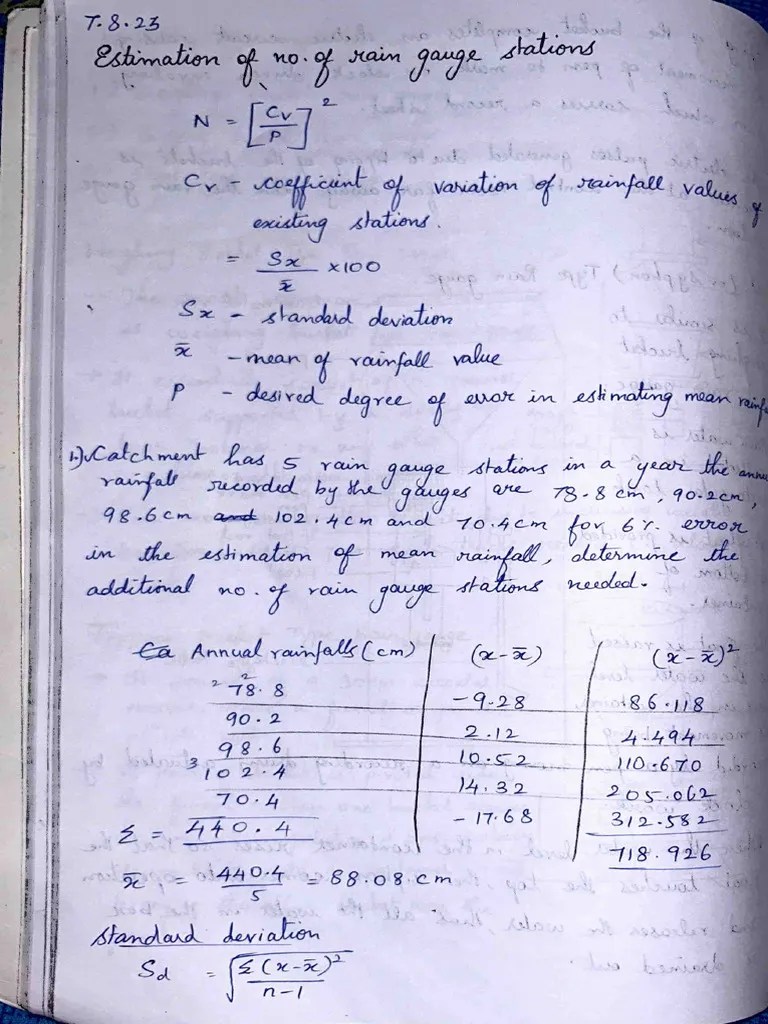 7.8.23
Estimation of no. of rain gauge stations
N = [Cv/P]²
Cv - coefficient of variation of rainfall values of
existing stations.
= Sx/x̄ ×100
Sx - standard deviation
x̄ - mean of rainfall value
P - desired degree of error in estimating mean rainf
1.) Catchment has 5 rain gauge stations in a year the annu
rainfall recorded by the gauges are 78.8 cm, 90.2cm,
98.6cm and 102.4cm and 70.4cm for 6% error
in the estimation of mean rainfall, determine the
additional no. of rain gauge stations needed.
Ca Annual rainfalls (cm) (x-x̄) (x-x̄)²
78.8 -9.28 86.118
90.2 2.12 4.494
98.6 10.52 110.670
102.4 14.32 205.062
70.4 -17.68 312.582
Σ = 440.4 718.926
x̄ = 440.4/5 = 88.08 cm
standard deviation
Sd = √Σ(x-x̄)²/n-1